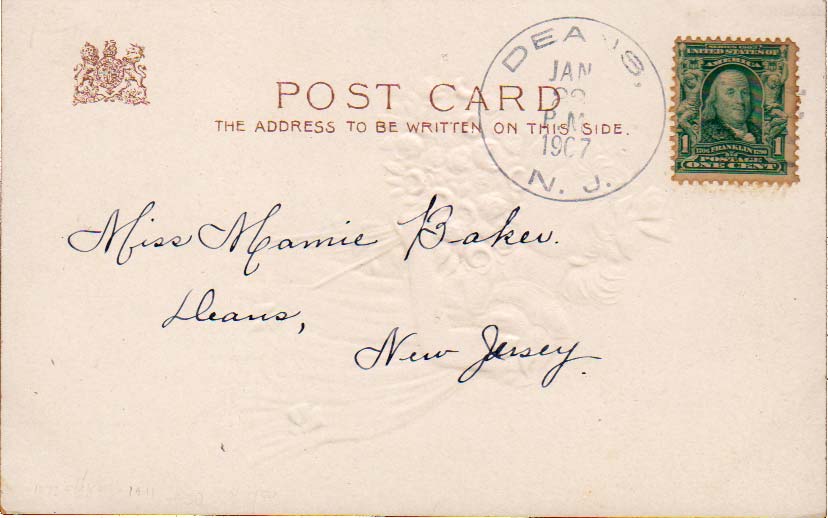 POST CARD
THE ADDRESS TO BE WRITTEN ON THIS SIDE.
DEANS,
JAN
P.M.
1907
N. J.
SERIES 1902
UNITED STATES OF
AMERICA
1 1706 FRANKLIN 1790 1
POSTAGE
ONE CENT
Miss Mamie Baker.
Deans,
New Jersey.